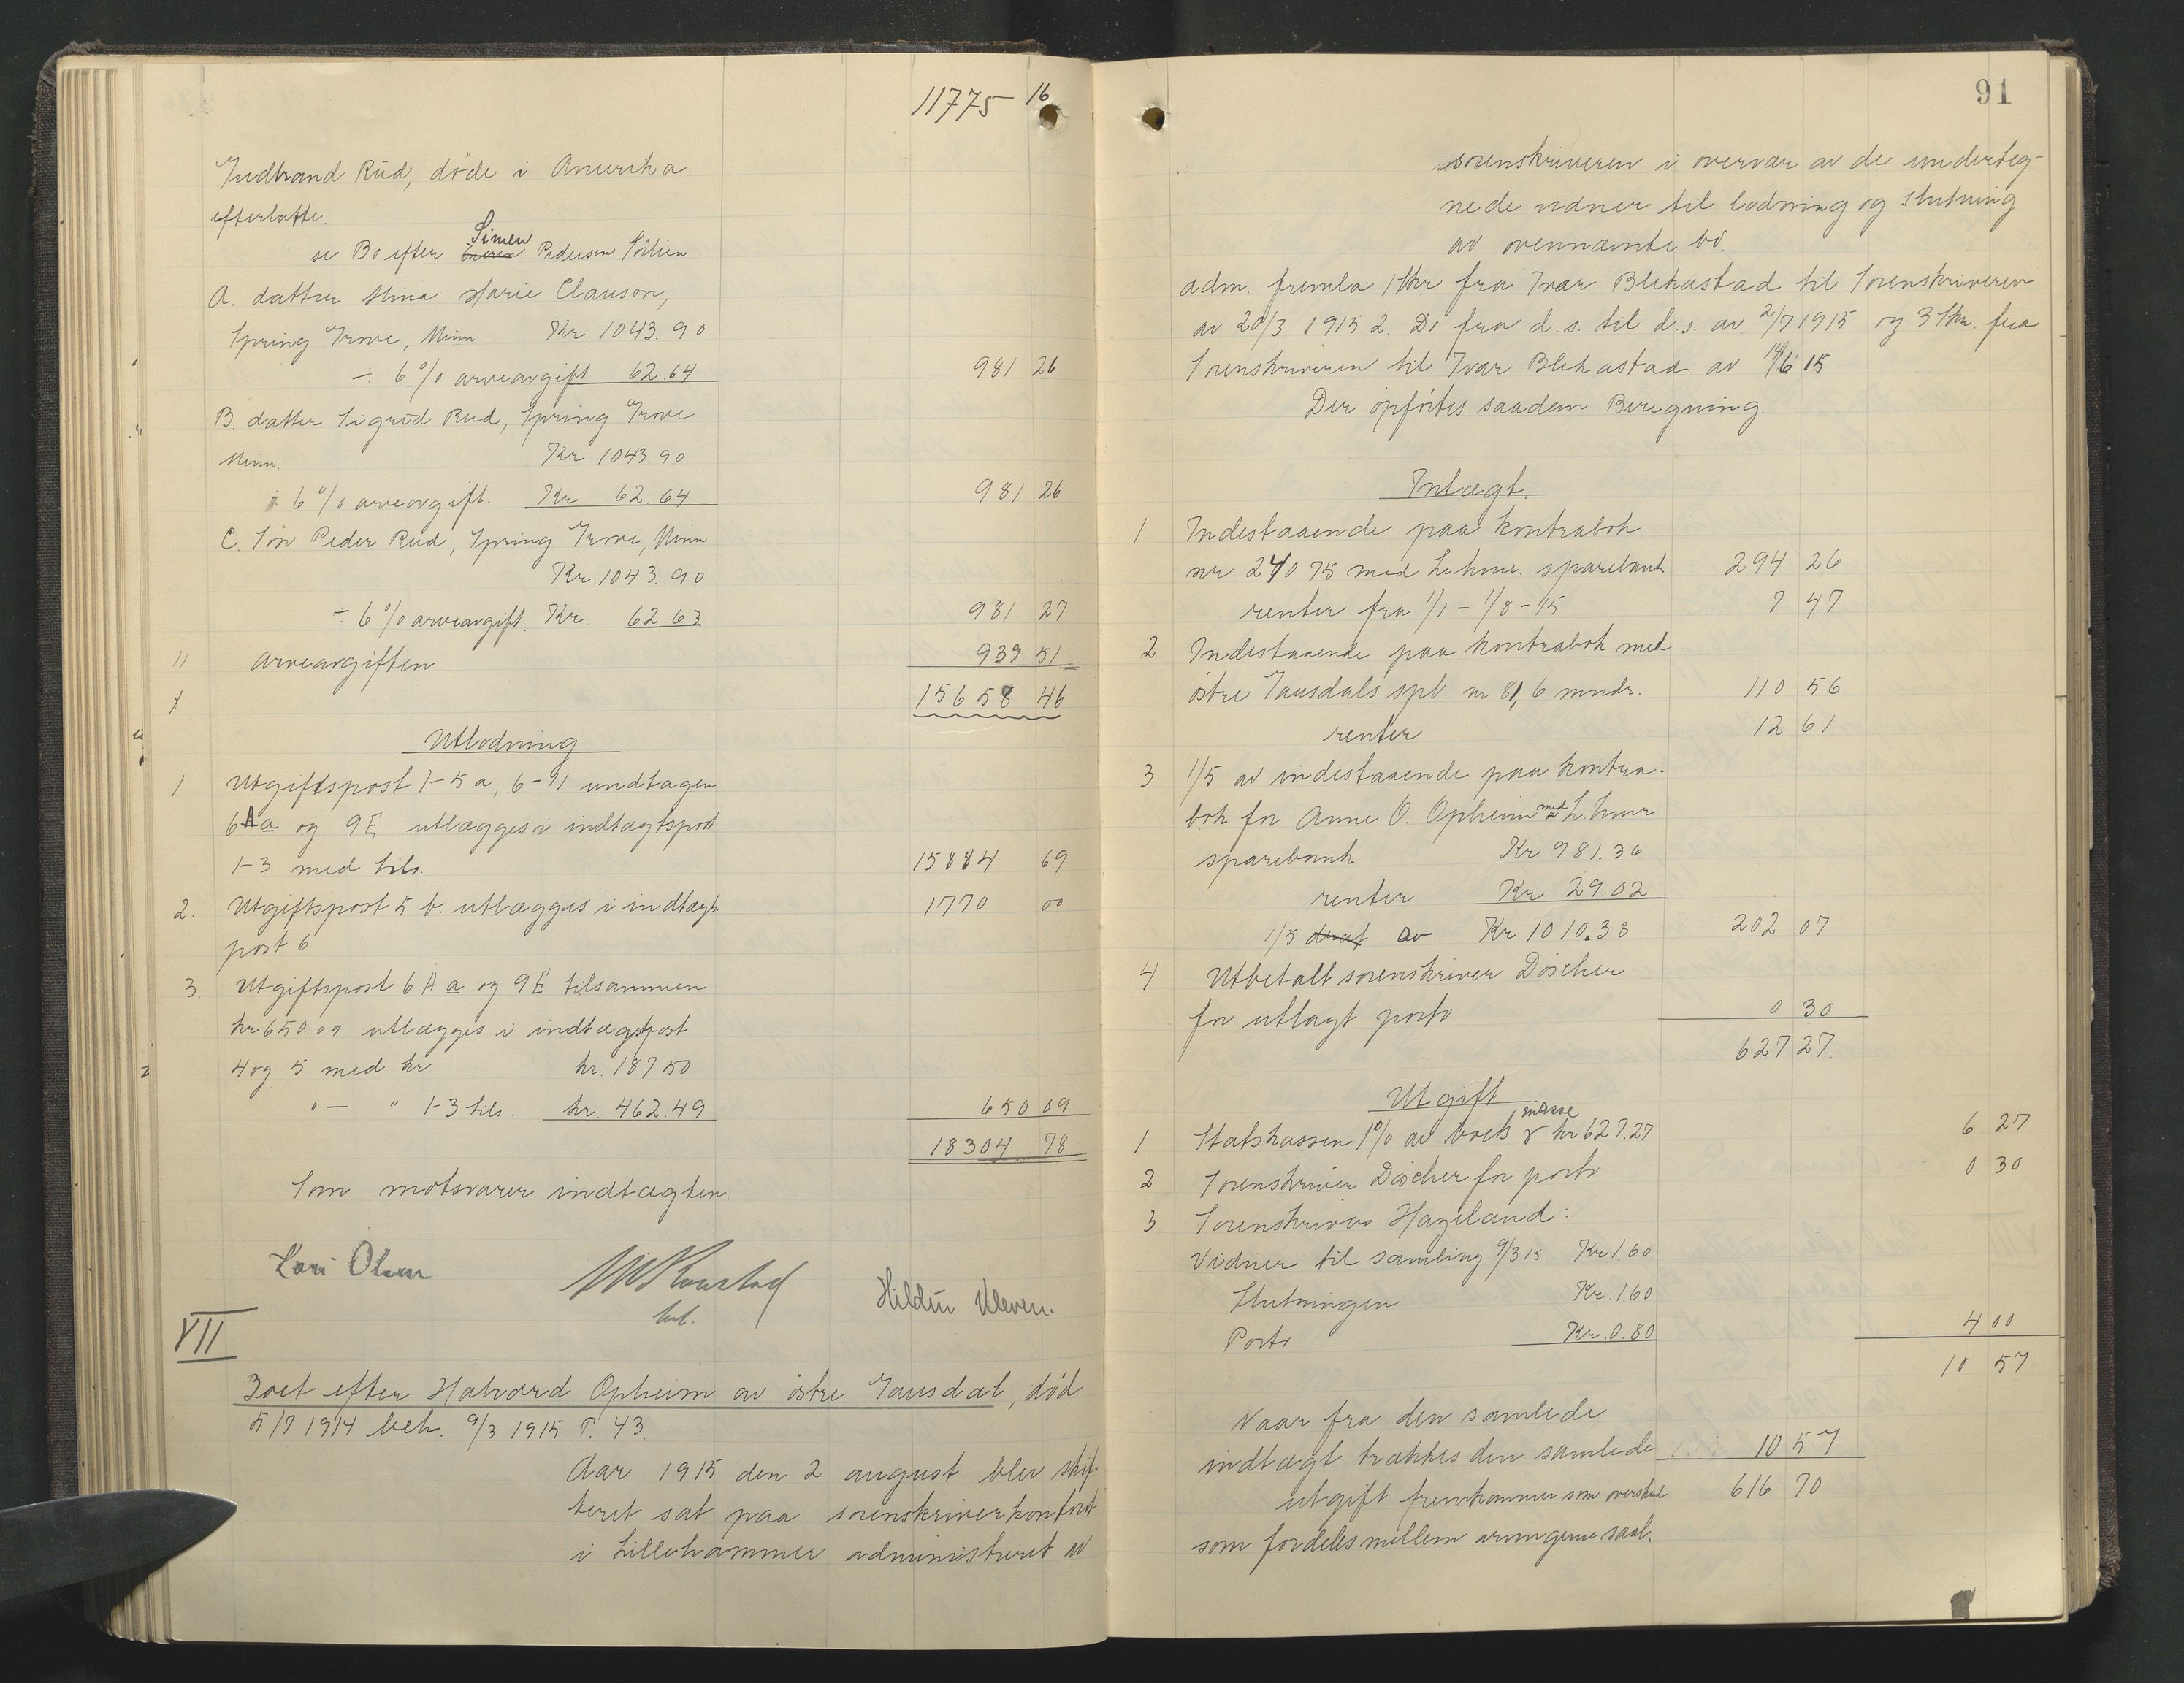 11775 16
Gudbrand Rud, døde i Amerika
efterlatte.
se Bo efter Simen Pedersen Sølien
A. datter Mina Marie Clauson,
Spring Grove, Minn Kr. 1043.90
÷ 6 % arveavgift 62.64 981 26
B. datter Sigrid Rud, Spring Grove
Minn. Kr. 1043.90
÷ 6 % arveavgift. Kr 62.64 981 26
C. Søn Peder Rud, Spring Grove, Minn
Kr. 1043.90
÷ 6 % arveavgift. Kr. 62.63 981 27
11 Arveavgiften 939 51
15658 46
Utlodning
1 Utgiftspost 1-5 a, 6-11 undtagen
6 A a og 9 E utlægges i indtægtspost
1-3 med tils. 15884 69
2. Utgiftspost 5 b. utlægges i indtægts
post 6 1770 00
3. Utgiftspost 6 A a og 9 E tilsammen
kr 650.09 utlægges i indtægtspost
4 og 5 med kr kr. 187.50
" — " 1-3 tils. kr. 462.49 650 09
18304 78
Som motsvarer indtægten.
Kari Olsen
Hildur Kleven.
VII
Boet efter Halvard Opheim av østre Gausdal, død
5/7 1914 beh. 9/3 1915 P. 43.
Aar 1915 den 2 august blev skif-
teret sat paa sorenskriverkontoret
i Lillehammer administreret av
91
sorenskriveren i overvær av de underteg-
nede vidner til lodning og slutning
av ovennævnte bo.
adm. fremla 1 Skr fra Ivar Blekastad til Sorenskriveren
av 20/3 1915 2. Do fra d.s. til d.s. av 2/7 1915 og 3 Skr. fra
Sorenskriveren til Ivar Blekastad av 14/6 15
Der opførtes saadan Beregning.
Indtægt.
1 Indestaaende paa kontrabok
nr 24075 med Lehmr. sparebank 294 26
renter fra 1/1 - 1/8 - 15 7 47
2 Indestaaende paa kontrabok med
østre Gausdals spb. nr 81, 6 mndr. 110 56
renter 12 61
3 1/5 av indestaaende paa kontra-
bok for Anne O. Opheim med L.hmr
sparebank Kr 981.36
renter Kr 29.02
1/5 av Kr 1010.38 202 07
4 Utbetalt sorenskriver Döscher
for utlagt porto 0 30
627 27.
Utgift
1 Statskassen 1 % av boets masse kr 627.27 6 27
2 Sorenskriver Döscher for porto 0 30
3 Sorenskriver Hazeland:
Vidner til samling 9/3 15 Kr 1.60
Slutningen Kr. 1.60
Porto Kr. 0.80 4 00
10 57
Naar fra den samlede
indtægt trækkes den samlede 10 57
utgift fremkommer som overskud 616 70
som fordeles mellem arvingerne saal.